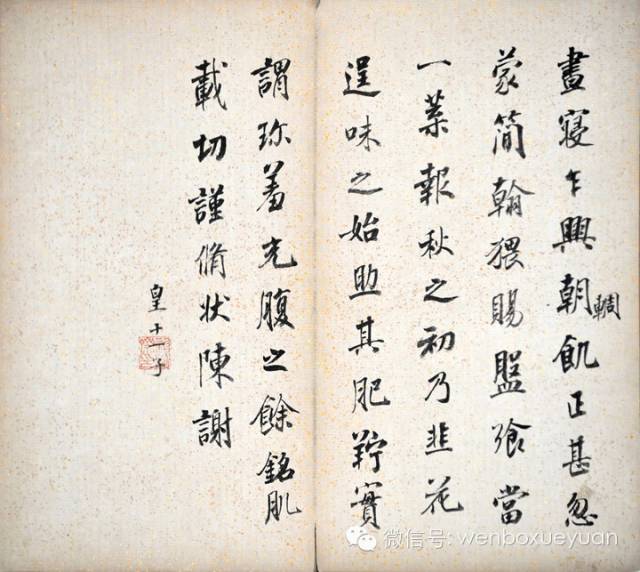 晝寢乍興朝飢正甚忽
輖
蒙簡翰猥賜盤飡當
一葉報秋之初乃韭花
逞味之始助其肥羜實
謂珍羞充腹之餘銘肌
載切謹脩状陳謝
皇十一子
微信号: wenboxueyuan